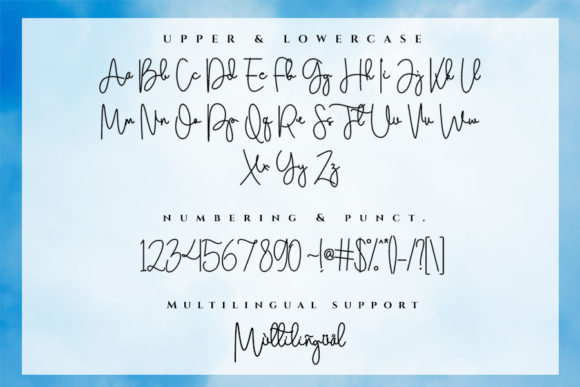 UPPER & LOWERCASE
Aa Bb Cc Dd Ee Ff Gg Hh Ii Jj Kk Ll
Mm Nn Oo Pp Qq Rr Ss Tt Uu Vv Ww
Xx Yy Zz
NUMBERING & PUNCT.
1234567890 ~!@#$%^*()-/?[\]
MULTILINGUAL SUPPORT